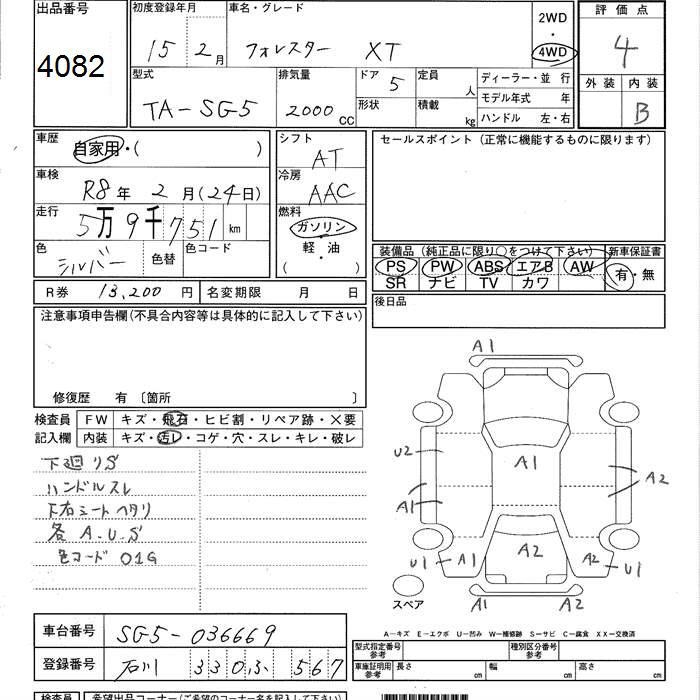 出品番号 初度登録年月 車名・グレード 2WD 評価点
4082 15 2月 フォレスター XT 4WD 4
型式 排気量 ドア 5 定員 人 ディーラー・並 行 外装 内装
TA-SG5 2000 CC 形状 積載 kg モデル年式 年 B
ハンドル 左・右
車歴 自家用・( ) シフト AT セールスポイント(正常に機能するものに限ります)
車検 R8年 2月(24日) 冷房 AAC
走行 5万9千751km 燃料 ガソリン
軽・油
( )
色 シルバー 色替 色コード 装備品(純正品に限り○をつけて下さい) 新車保証書
PS PW ABS エアB AW 有・無
SR ナビ TV カワ
R券 13,200円 名変期限 月 日 後日品
注意事項申告欄(不具合内容等は具体的に記入して下さい)
修復歴 有 〔箇所 〕
検査員 FW キズ・飛石・ヒビ割・リペア跡・X要
記入欄 内装 キズ・汚レ・コゲ・穴・スレ・キレ・破レ
下廻りS
ハンドルスレ
下右シートヘタリ
各 A.U.S
色コード 01G
A1
U2 A1 A2
A1
U1 A1 A2 A2 U1
A1 A2
スペア
A-キズ E-エクボ U-凹み W-補修跡 S-サビ C-腐食 XX-交換済
車台番号 SG5-036669 型式指定番号 参考 種別区分番号 参考
登録番号 石川 330ふ 567 車庫証明用 参考 長さ cm 幅 cm 高さ cm
検査員 希望出品コーナー(ご希望のコーナー名を記入下さい)